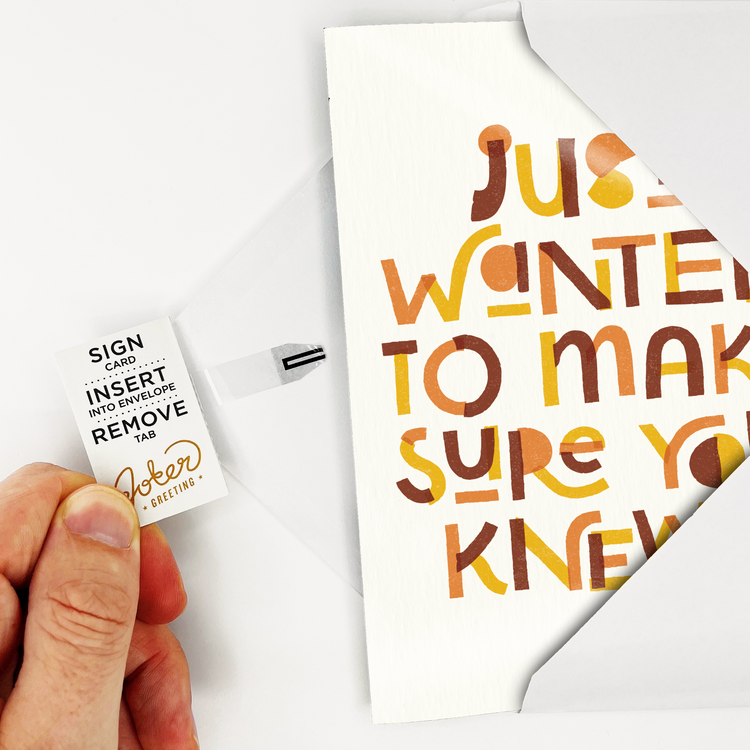 SIGN
CARD
INSERT
INTO ENVELOPE
REMOVE
TAB
Joker
★ GREETING ★
JUS
WANTE
TO MAK
SURE YO
KNEW